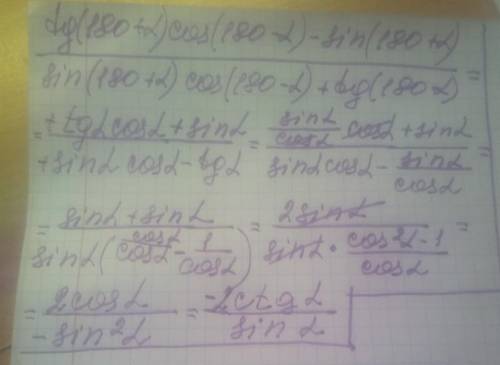 tg(180+α)cos(180-α)-sin(180+α)
sin(180+α) cos(180-α)+tg(180-α) =
= +tgα cosα + sinα / +sinα cosα - tgα = sinα/cosα cosα + sinα / sinα cosα - sinα/cosα =
= sinα + sinα / sinα(cosα/cosα - 1/cosα) = 2sinα / sinα · cos²α-1/cosα =
= 2cosα / -sin²α = -2ctgα / sinα